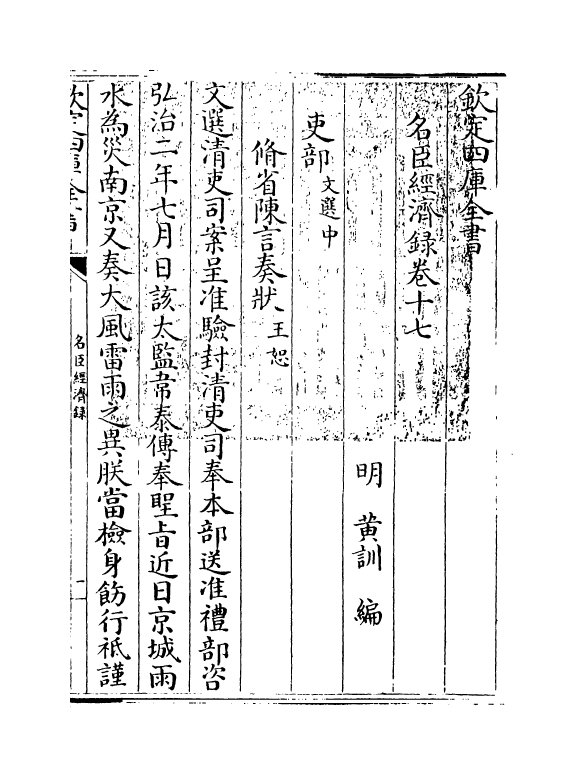 欽定四庫全書
名臣經濟録卷十七
明 黄訓 編
吏部文選中
脩省陳言奏狀王恕
文選清吏司案呈准驗封清吏司奉本部送准禮部咨
弘治二年七月日該太監韋泰傳奉聖旨近日京城雨
水為災南京又奏大風雷雨之異朕當檢身飭行祗謹
欽定四庫全書
名臣經濟録
一